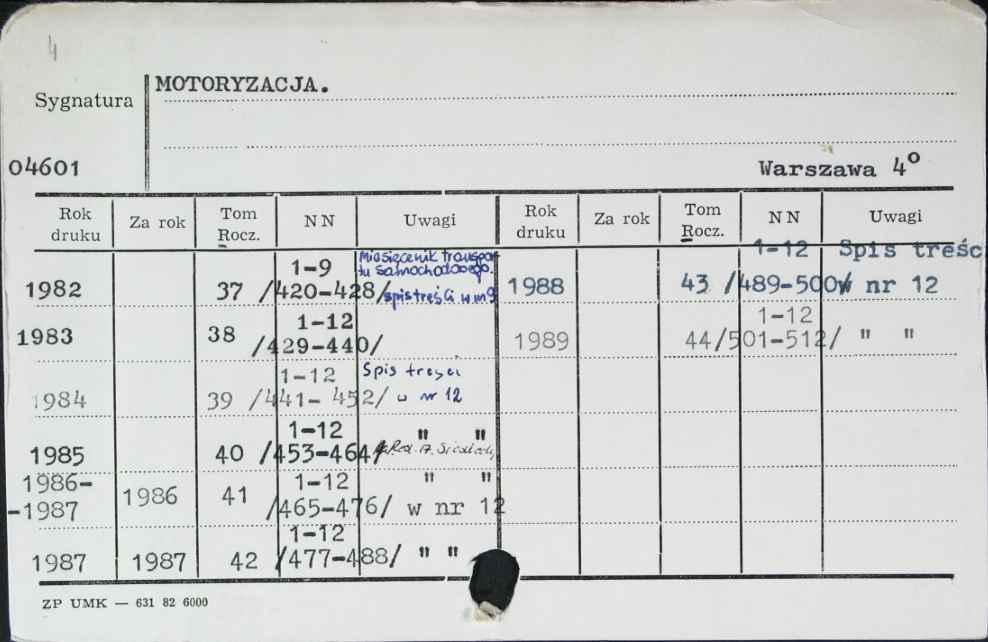 4
MOTORYZACJA.
Sygnatura
04601
Warszawa 4°
Rok druku Za rok Tom Rocz. NN Uwagi Rok druku Za rok Tom Rocz. NN Uwagi
1982 37 1-9 /420-428/ Miesięcznik transportu samochodowego. spis treści w nr 9
1988 43 1-12 /489-500/ Spis treśc w nr 12
1983 38 1-12 /429-440/
1989 44 1-12 /501-512/ " "
1984 39 1-12 /441-452/ Spis treści w nr 12
1985 40 1-12 /453-464/ " " Red. A.
1986-1987 1986 41 1-12 /465-476/ " " w nr 12
1987 1987 42 1-12 /477-488/ " "
ZP UMK — 631 82 6000